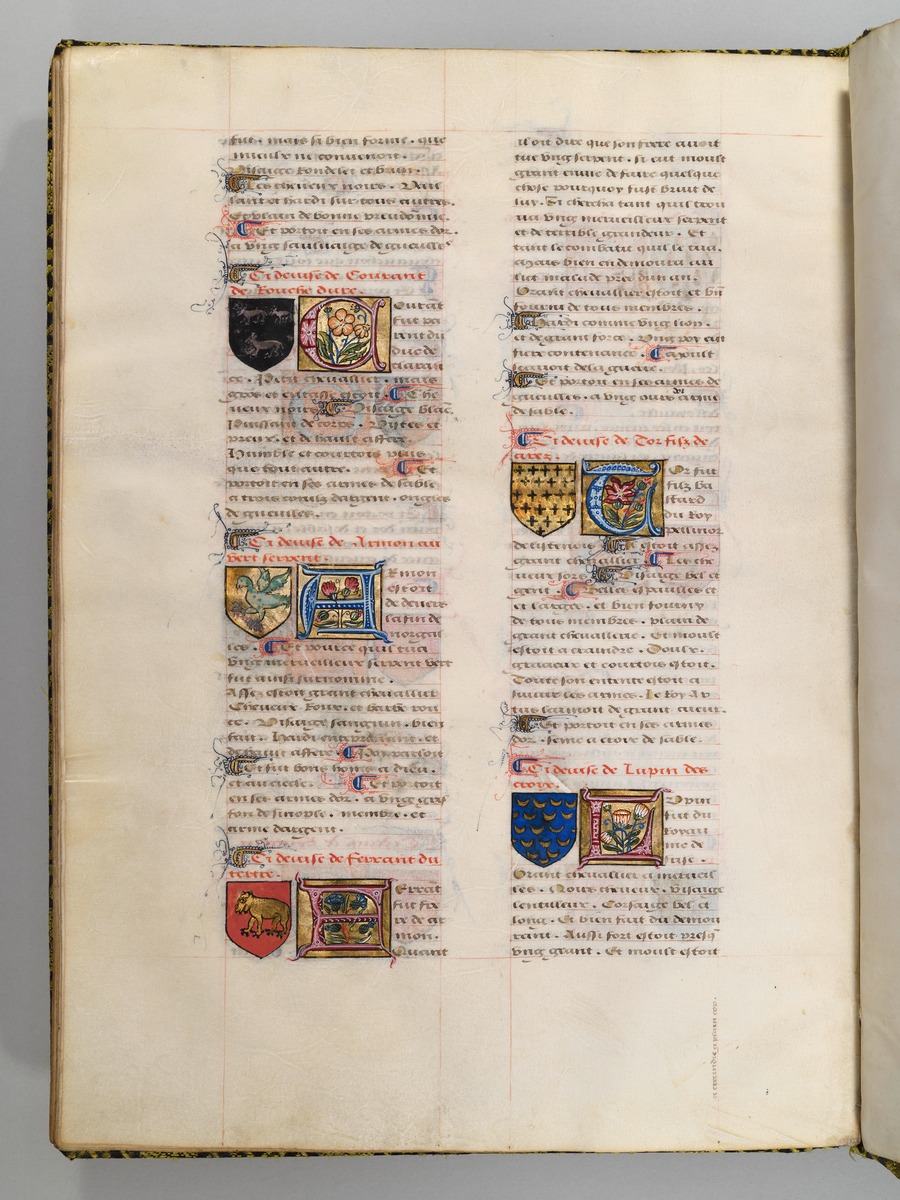 fut. mais si bien forme. que
mieulx ne conuenoit.
Visaige Rondelet et brun.
Les cheueux noirs. Vail
lant et hardi sur tous autres.
Et plain de bonne preudomie.
Et portoit en ses armes dor.
a vng saulnaige de gueulles
Ci deuise de Courant
de Roche dure.
Courāt
fut pa
rent du
duc de
claran
ce. Petit cheuallier. mais
gros et entasse estoit. Le che
ueux noirs. Visaige blāc.
Puissant de corps. Vistes et
preux. et de hault affere.
Humble et courtois plus
que tout autre. Et
portoit en ses armes de sable
a trois connilz dargent. ongles
de gueulles.
Ci deuise de Armon au
vert serpent.
Armon
estoit
de deuers
la fin de
norgal
les. Et pource quil tua
vng merueilleux serpent vert
fut ainsi surnomme.
Assez estoit grant cheuallier
Cheueux Roux. et barbe rou
ce. Visaige sanguin. bien
fait. Hardi entreprenant. et
de hault affere. Poy parloit
Et fut bons homs a dieu.
et au siecle. Et portoit
en ses armes dor. a vng grif
fon de sinople. membre. et
arme dargent.
Ci deuise de Ferrant du
tertre.
Ferrāt
fut fre
re de ar
mon.
Quant
il oit dire que son frere auoit
tue vng serpent. si eut moult
grant enuie de faire quelque
chose pourquoy fust bruit de
luy. Si chercha tant quil trou
ua vng merueilleux serpent
et de terrible grandeur. Et
tant le combatit quil le tua.
Mais bien en demoura au
lict malade pres dun an.
Grant cheuallier estoit et biē
fourni de tous membres.
Hardi comme vng lion.
et de grant force. Vng poy eut
fiere contenance. Et moult
scauoit de la guerre.
Et portoit en ses armes de
gueulles. a vng ours dor arme
de sable.
Ci deuise de Tor filz de
arez.
Tor fut
filz ba
stard
du Roy
pellinor
de listenois. Et estoit assez
grant cheuallier. Les che
ueux sors. Visaige bel et
gent. Belles espaulles et
et larges. et bien fourny
de tous membres. plain de
grant cheuallerie. Et moult
estoit a craindre. Doulx.
gracieux et courtois estoit.
Toute son entente estoit a
suiuir les armes. Le Roy Ar
tus laimoit de grant cueur.
Et portoit en ses armes
dor. seme a croix de sable.
Ci deuise de Lupin des
croix.
Lupin
fut du
Royau
me de
frise.
Grant cheuallier a merueil
les. Noirs cheueux. Visaige
lentilleux. Corsaige bel et
long. Et bien fait du demou
rant. Aussi fort estoit presq̄
vng geant. Et moult estoit